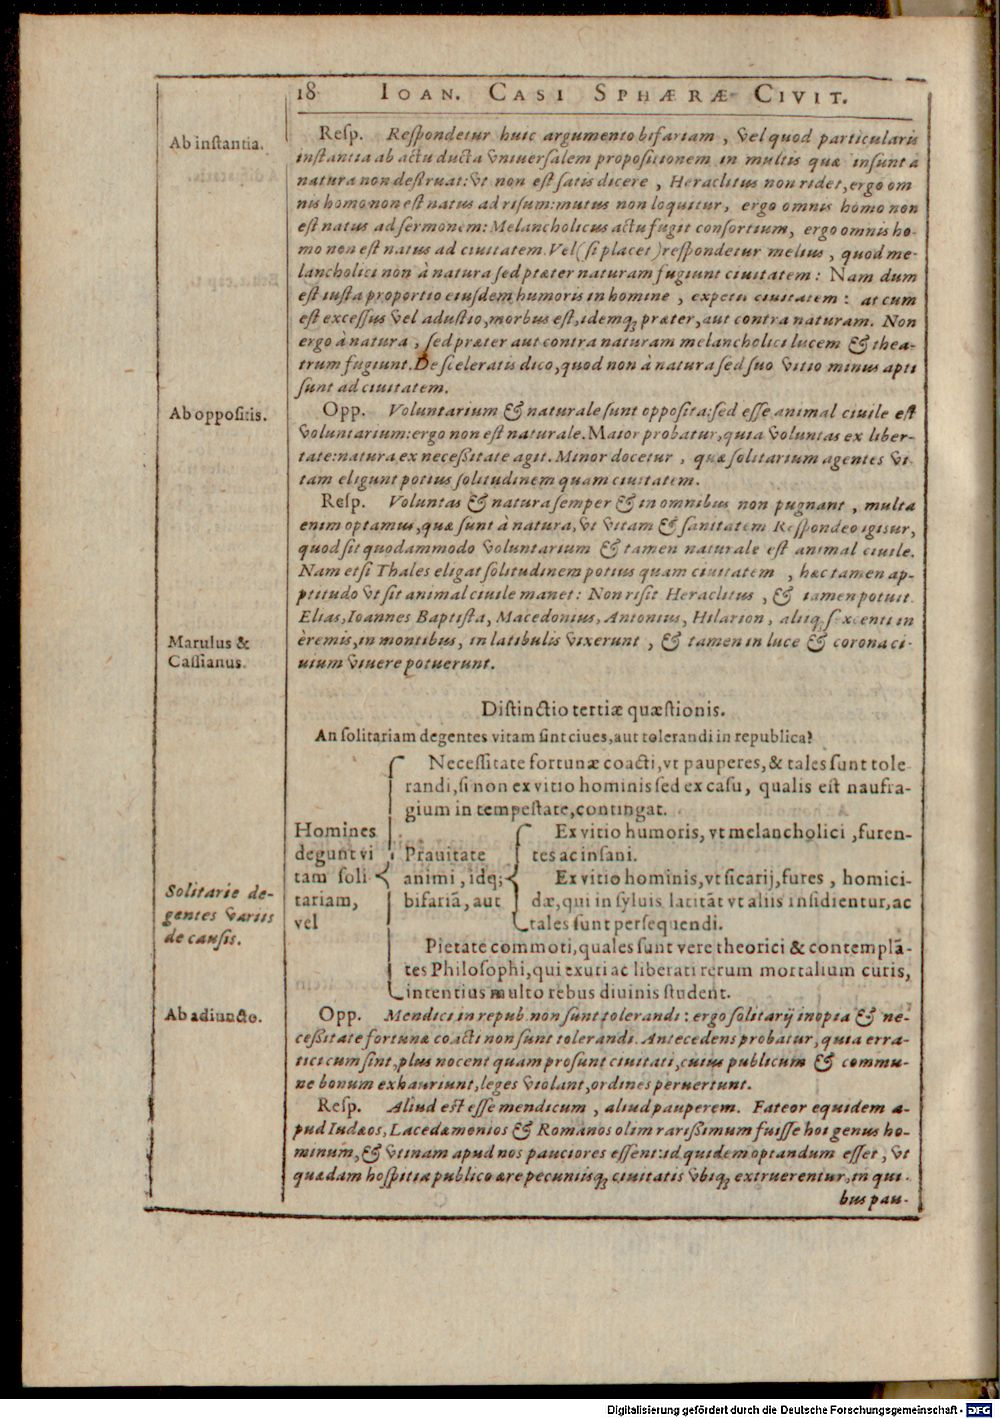 18 IOAN. CASI SPHÆRÆ CIVIT.
Ab instantia.
Resp. Respondetur huic argumento bifariam, vel quod particularis
instantia ab actu ducta vniuersalem propositionem in multis quæ insunt à
natura non destruat: vt non est satis dicere, Heraclitus non ridet, ergo om
nis homo non est natus ad risum: mutus non loquitur, ergo omnis homo non
est natus ad sermonem: Melancholicus actu fugit consortium, ergo omnis ho-
mo non est natus ad ciuitatem. Vel (si placet) respondetur melius, quod me-
lancholici non à natura sed præter naturam fugiunt ciuitatem: Nam dum
est iusta proportio eiusdem humoris in homine, expetit ciuitatem: at cum
est excessus vel adustio, morbus est, idemq; præter, aut contra naturam. Non
ergo à natura, sed præter aut contra naturam melancholici lucem & thea-
trum fugiunt. De sceleratis dico, quod non à natura sed suo vitio minus apti
sunt ad ciuitatem.
Ab oppositis.
Opp. Voluntarium & naturale sunt opposita: sed esse animal ciuile est
voluntarium: ergo non est naturale. Maior probatur, quia voluntas ex liber-
tate: natura ex necessitate agit. Minor docetur, quæ solitarium agentes vi
tam eligunt potius solitudinem quam ciuitatem.
Resp. Voluntas & natura semper & in omnibus non pugnant, multa
enim optamus, quæ sunt à natura, vt vitam & sanitatem Respondeo igitur,
quod sit quodammodo voluntarium & tamen naturale est animal ciuile.
Nam etsi Thales eligat solitudinem potius quam ciuitatem, hæc tamen ap-
ptitudo vt sit animal ciuile manet: Non risit Heraclitus, & tamen potuit.
Elias, Ioannes Baptista, Macedonius, Antonius, Hilarion, aliiq; sexcenti in
Marulus &
Cassianus.
èremis, in montibus, in latibulis vixerunt, & tamen in luce & corona ci-
uium viuere potuerunt.
Distinctio tertiæ quæstionis.
An solitariam degentes vitam sint ciues, aut tolerandi in republica?
Solitarie de-
gentes variis
de causis.
Homines
degunt vi
tam soli
tariam,
vel
Necessitate fortunæ coacti, vt pauperes, & tales sunt tole
randi, si non ex vitio hominis sed ex casu, qualis est naufra-
gium in tempestate, contingat.
Prauitate
animi, idq;
bifariā, aut
Ex vitio humoris, vt melancholici, furen-
tes ac insani.
Ex vitio hominis, vt sicarij, fures, homici-
dæ, qui in syluis latitāt vt aliis insidientur, ac
tales sunt persequendi.
Pietate commoti, quales sunt vere theorici & contemplā-
tes Philosophi, qui exuti ac liberati rerum mortalium curis,
intentius multo rebus diuinis student.
Ab adiuncto.
Opp. Mendici in repub. non sunt tolerandi: ergo solitarij inopia & ne-
cessitate fortunæ coacti non sunt tolerandi. Antecedens probatur, quia erra-
tici cum sint, plus nocent quam prosunt ciuitati, cuius publicum & commu-
ne bonum exhauriunt, leges violant, ordines peruertunt.
Resp. Aliud est esse mendicum, aliud pauperem. Fateor equidem a-
pud Iudæos, Lacedæmonios & Romanos olim rarissimum fuisse hoc genus ho-
minum, & vtinam apud nos pauciores essent: id quidem optandum esset, vt
quædam hospitia publico ære pecuniisq; ciuitatis vbiq; extruerentur, in qui-
bus pau-
Digitalisierung gefördert durch die Deutsche Forschungsgemeinschaft - DFG